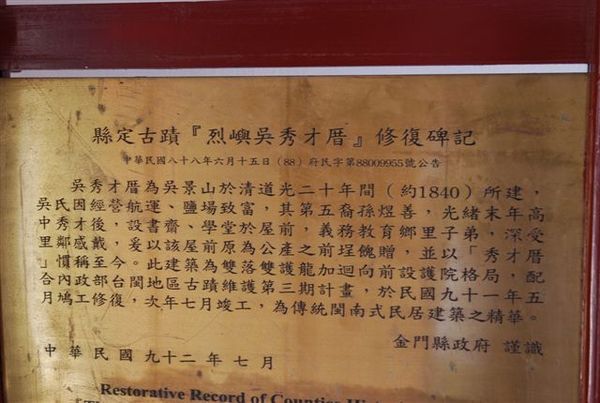 縣定古蹟『烈嶼吳秀才厝』修復碑記
中華民國八十八年六月十五日（88）府民字第88009955號公告
吳秀才厝為吳景山於清道光二十年間（約1840）所建，
吳氏因經營航運、鹽場致富，其第五裔孫煜善，光緒末年高
中秀才後，設書齋、學堂於屋前，義務教育鄉里子弟，深受
里鄰感戴，爰以該屋前原為公產之前埕餽贈，並以「秀才厝
」慣稱至今。此建築為雙落雙護龍加迴向前設護院格局，配
合內政部台閩地區古蹟維護第三期計畫，於民國九十一年五
月鳩工修復，次年七月竣工，為傳統閩南式民居建築之精華。
金門縣政府 謹識
中華民國九十二年七月
Restorative Record of Counties